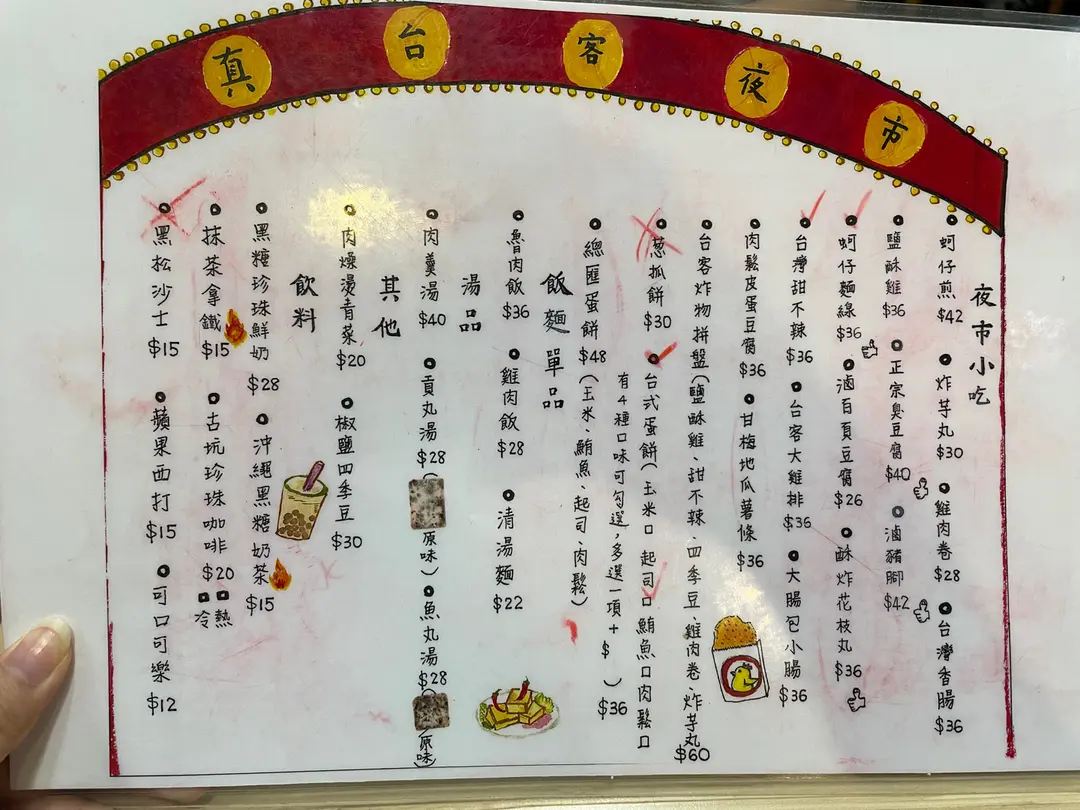 真台客夜市
夜市小吃
蚵仔煎 $42
炸芋丸 $30
雞肉卷 $28
台灣香腸 $36
鹽酥雞 $36
正宗臭豆腐 $40
滷豬腳 $42
蚵仔麵線 $36
滷百頁豆腐 $26
酥炸花枝丸 $36
台灣甜不辣 $36
台客大雞排 $36
大腸包小腸 $36
肉鬆皮蛋豆腐 $36
甘梅地瓜薯條 $36
台客炸物拼盤(鹽酥雞、甜不辣、四季豆、雞肉卷、炸芋丸 $60
葱抓餅 $30
台式蛋餅(玉米口 起司口 鮪魚口肉鬆口
有4種口味可勾選,多選一項+$ ) $36
總匯蛋餅 $48 (玉米、鮪魚、起司、肉鬆)
飯麵單品
魯肉飯 $36
雞肉飯 $28
清湯麵 $22
湯品
肉羹湯 $40
貢丸湯 $28
原味)
魚丸湯 $28
(原味)
其他
肉燥燙青菜 $20
椒鹽四季豆 $30
飲料
黑糖珍珠鮮奶 $28
沖繩黑糖奶茶 $15
抹茶拿鐵 $15
古坑珍珠咖啡 $20
口熱
口冷
黑松沙士 $15
蘋果西打 $15
可口可樂 $12